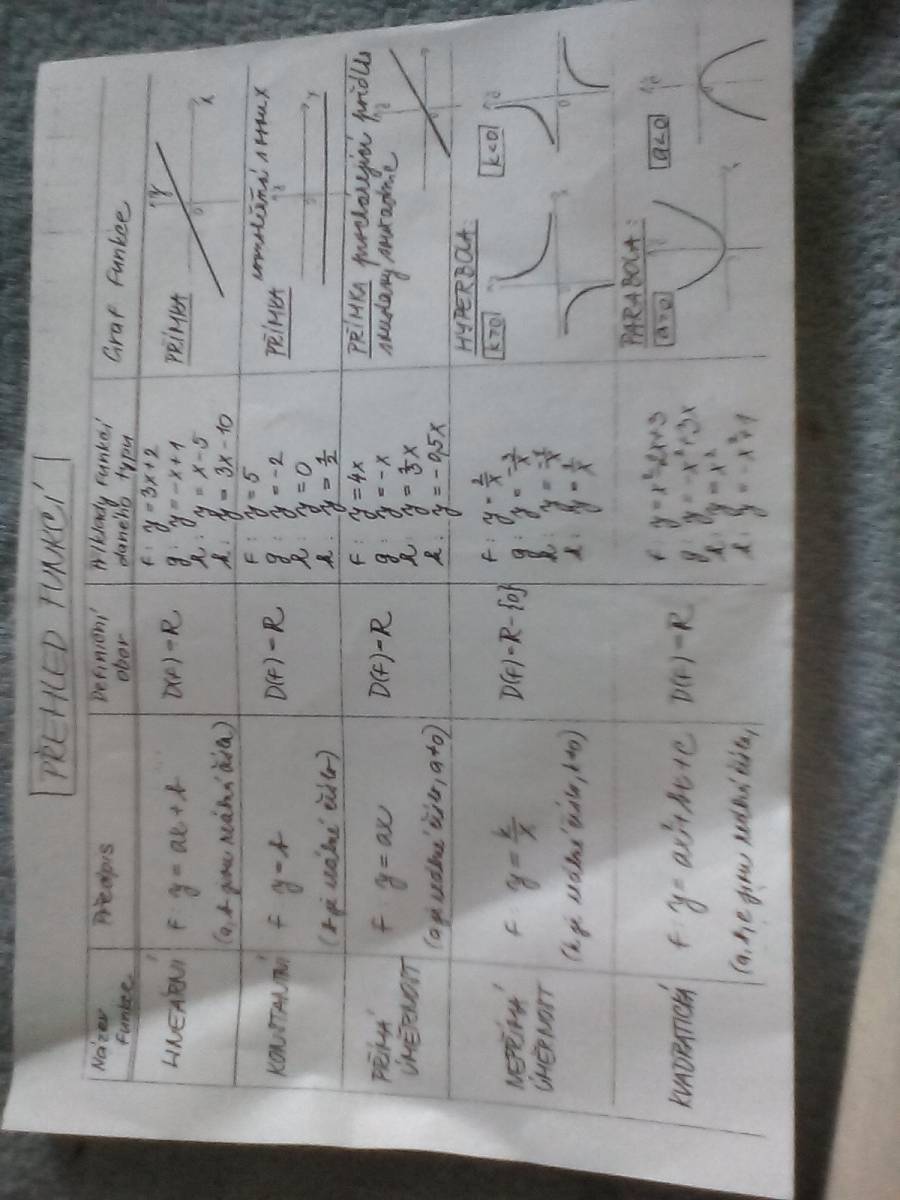 PŘEHLED FUNKCÍ
Název funkce
Předpis
Definiční obor
Příklady funkcí daného typu
Graf funkce
LINEÁRNÍ
f: y = ax + b
(a, b jsou reálná čísla)
D(f) = R
f: y = 3x + 2
g: y = -x + 1
h: y = x - 5
k: y = 3x - 10
PŘÍMKA
y
x
0
KONSTANTNÍ
f: y = b
(b je reálné číslo)
D(f) = R
f: y = 5
g: y = -2
h: y = 0
k: y = 1/2
PŘÍMKA rovnoběžná s osou x
y
x
0
PŘÍMÁ ÚMĚRNOST
f: y = ax
(a je reálné číslo, a ≠ 0)
D(f) = R
f: y = 4x
g: y = -x
h: y = 1/3 x
k: y = -0,5x
PŘÍMKA procházející
soustavy souřadnic
NEPŘÍMÁ ÚMĚRNOST
f: y = k/x
(k je reálné číslo, k ≠ 0)
D(f) = R - {0}
f: y = 2/x
g: y =
h: y =
k: y =
HYPERBOLA:
k>0
k<0
KVADRATICKÁ
f: y = ax² + bx + c
(a, b, c jsou reálná čísla,
D(f) = R
f: y = x² - 2x + 3
g: y = -x² + 3x
h: y = x²
k: y = -x² + 1
PARABOLA:
a>0
a<0